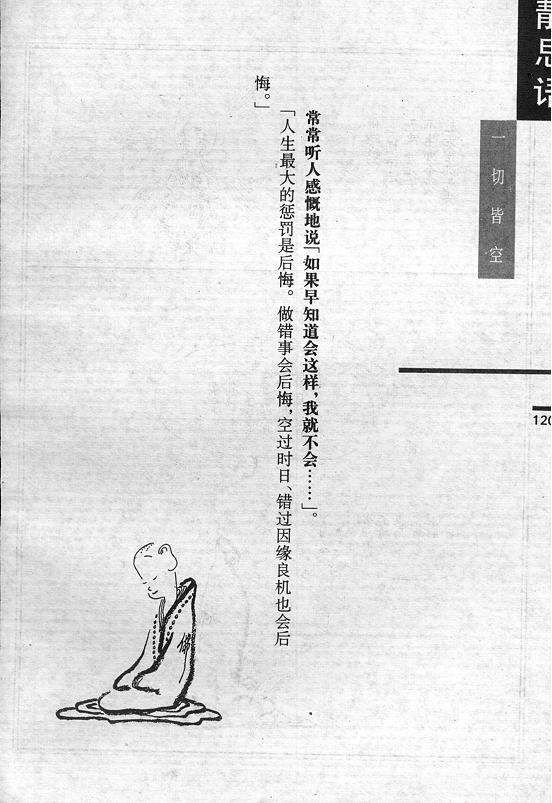 静思语
一切皆空
120
常常听人感慨地说「如果早知道会这样,我就不会……」。
「人生最大的惩罚是后悔。做错事会后悔,空过时日、错过因缘良机也会后
悔。」
佛